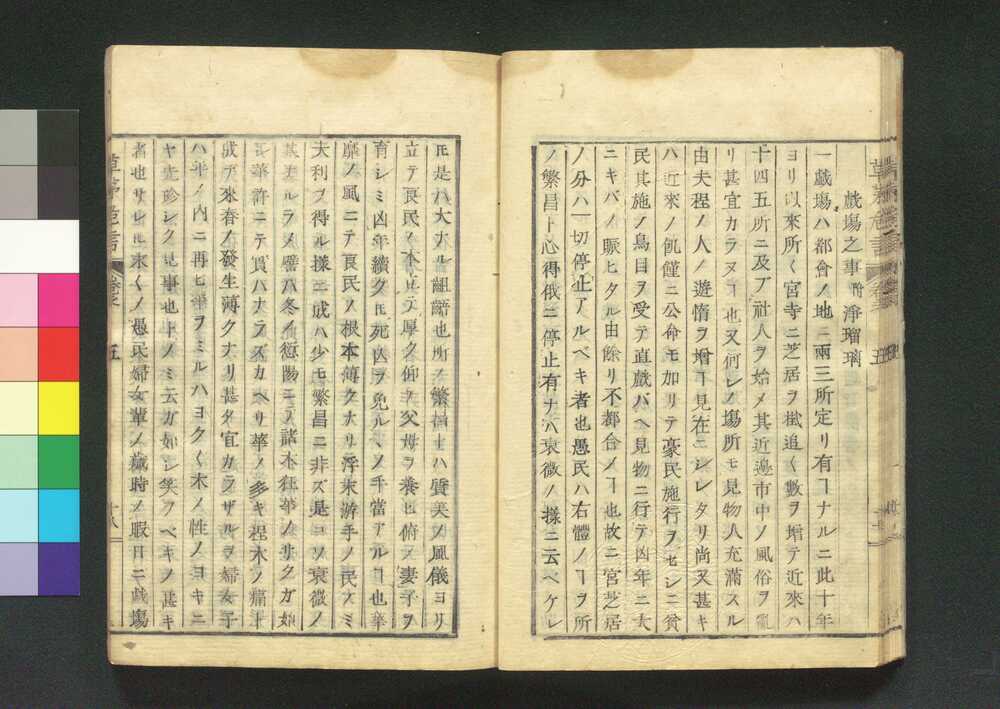 戯場之事 附 淨瑠璃
一戯場ハ都會ノ地ニ兩三所定リ有ヿナルニ此十年
ヨリ以來所く宮寺ニ芝居ヲ掛追く數ヲ增テ近來ハ
十四五所ニ及ブ社人ヲ始メ其近邊市中ノ風俗ヲ亂
リ甚宜カラヌヿ也又何レノ場所モ見物人充滿スル
由夫程ノ人ノ遊惰ヲ增ヿ見在ニシレタリ尚又甚キ
ハ近來ノ飢饉ニ公命モ加リテ豪民施行ヲセシニ貧
民其施ノ鳥目ヲ受テ直戯バヘ見物ニ行テ凶年ニ大
ニキバノ賑ヒタル由餘リ不都合ノヿ也故ニ宮芝居
ノ分ハ一切停止アルベキ者也愚民ハ右體ノヿヲ所
ノ繁昌ト心得俄ニ停止有ナバ衰微ノ樣ニ云ベケレ
𪜈是ハ大ナル齟齬也所ノ繁昌トハ質美ノ風儀ヨリ
立テ良民ノ本立テ厚ク仰テ父母ヲ養ヒ俯テ妻子ヲ
育シミ凶年續ク𪜈死凶ヲ免ル丶ノ手當アルヿ也華
靡ノ風ニテ良民ノ根本薄クナリ浮末游手ノ民ノミ
大利ヲ得ル樣ニ成ハ少モ繁昌ニ非ズ是コソ衰微ノ
甚シルシノ譬バ冬ノ愆陽ニテ諸木狂華ノサクガ如
シ華許ニテ實ハナラズカヘリ華ノ多キ程木ノ痛ト
成テ來春ノ發生薄クナリ甚タ宜カラザルヲ婦女子
ハ年ノ内ニ再ヒ華ヲミルハヨクく木ノ性ノヨキニ
ヤ尤珍シク見事也トノミ云ガ如シ笑フベキノ甚キ
者也サレ𪜈末くノ愚民婦女輩ノ歳時ノ暇日ニ戯場
草茅危言